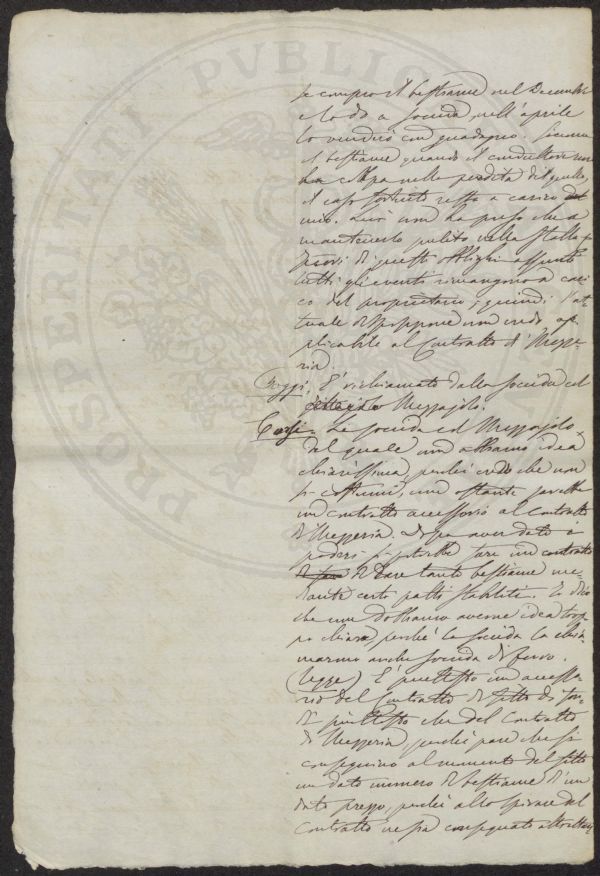 PROSPERITATI PVBLICAE
se compro il bestiame nel Decembre
e lo do a soccida, nell'aprile
lo venderò con guadagno. Siccome
il bestiame quando il conduttore non
ha colpa nella perdita del quello,
il caso fortuito resta a carico
mio. non ha preso che a
mantenerlo pulito nella stalla e
fuori di questi obblighi assunti
tutti gli eventi rimangono a cari-
co del proprietario; quindi l'at-
tuale disposizione non credo ap-
plicabile al Contratto di Mezze-
ria.
Poggi. È richiamato dalla soccida col
Mezzajolo.
Corsi. La soccida col Mezzajolo,
del quale non abbiamo idea
chiarissima, perché credo che non
si costumi, non ostante sarebbe
un contratto accessorio al Contratto
di Mezzeria. Dopo aver dato i
poderi si potrebbe fare un contratto
di dare tante bestiame me-
diante certi patti stabiliti. Io dico
che non dobbiamo averne idea trop-
po chiara, perché la soccida la chia-
marono anche soccida di ferro.
(legge) È piuttosto un accesso-
rio del Contratto di fitto di fon-
di piuttosto che del Contratto
di Mezzeria, perché pare che si
conseguino al momento del fitto
un dato numero di bestiame d'un
dato prezzo, perché allo spirare del
Contratto ne sia consegnato altrettan